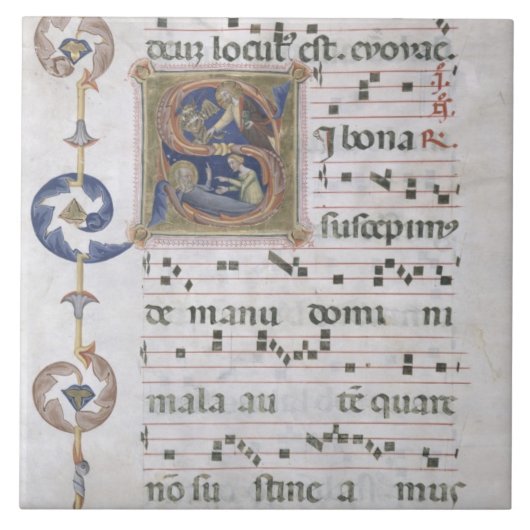 deus locut' est. evovae.
Si bona R.
suscepim'
de manu domi ni
mala au tē quare
nō su stine a mus